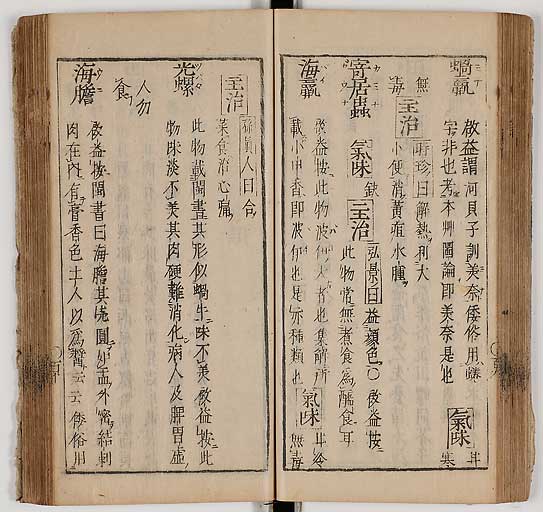 蝸蠃 啟益謂河貝子訓美奈倭俗用
字非也考本艸圖論即美奈是也 氣味 甘寒
無毒 主治 時珍曰解熱利大
小便消黃疸水腫
寄居蟲 氣味 缺 主治 弘景曰益顏色○啟益按
此物常無煮食爲醢食耳
海蠃 啟益按此物波你乃大者也集解所
載小甲香即波你也是亦種類也 氣味 甘冷
無毒
主治 孫真人曰合
菜食治心痛
光螺 此物載閩書其形似蝸牛味不美啟益按此
物味淡不美其肉硬難消化病人及脾胃虛
人勿食
海膽 啟益按閩書曰海膽其売圓如盂外密結刺
肉在內有膏香色土人以爲醬云云倭俗用